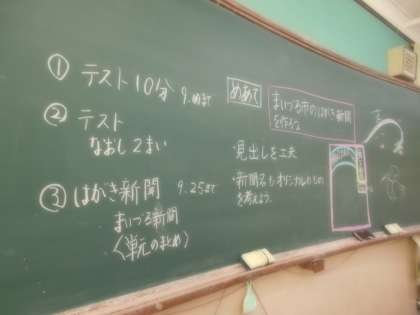 ① テスト10分 9.時まで
② テスト
なおし2まい
③ はがき新聞 9.25まで
まいづる新聞
〈単元のまとめ〉
めあて
まいづる市のはがき新聞
を作ろう
・見出しを工夫
・新聞名もオリジナルのもの
を考えよう